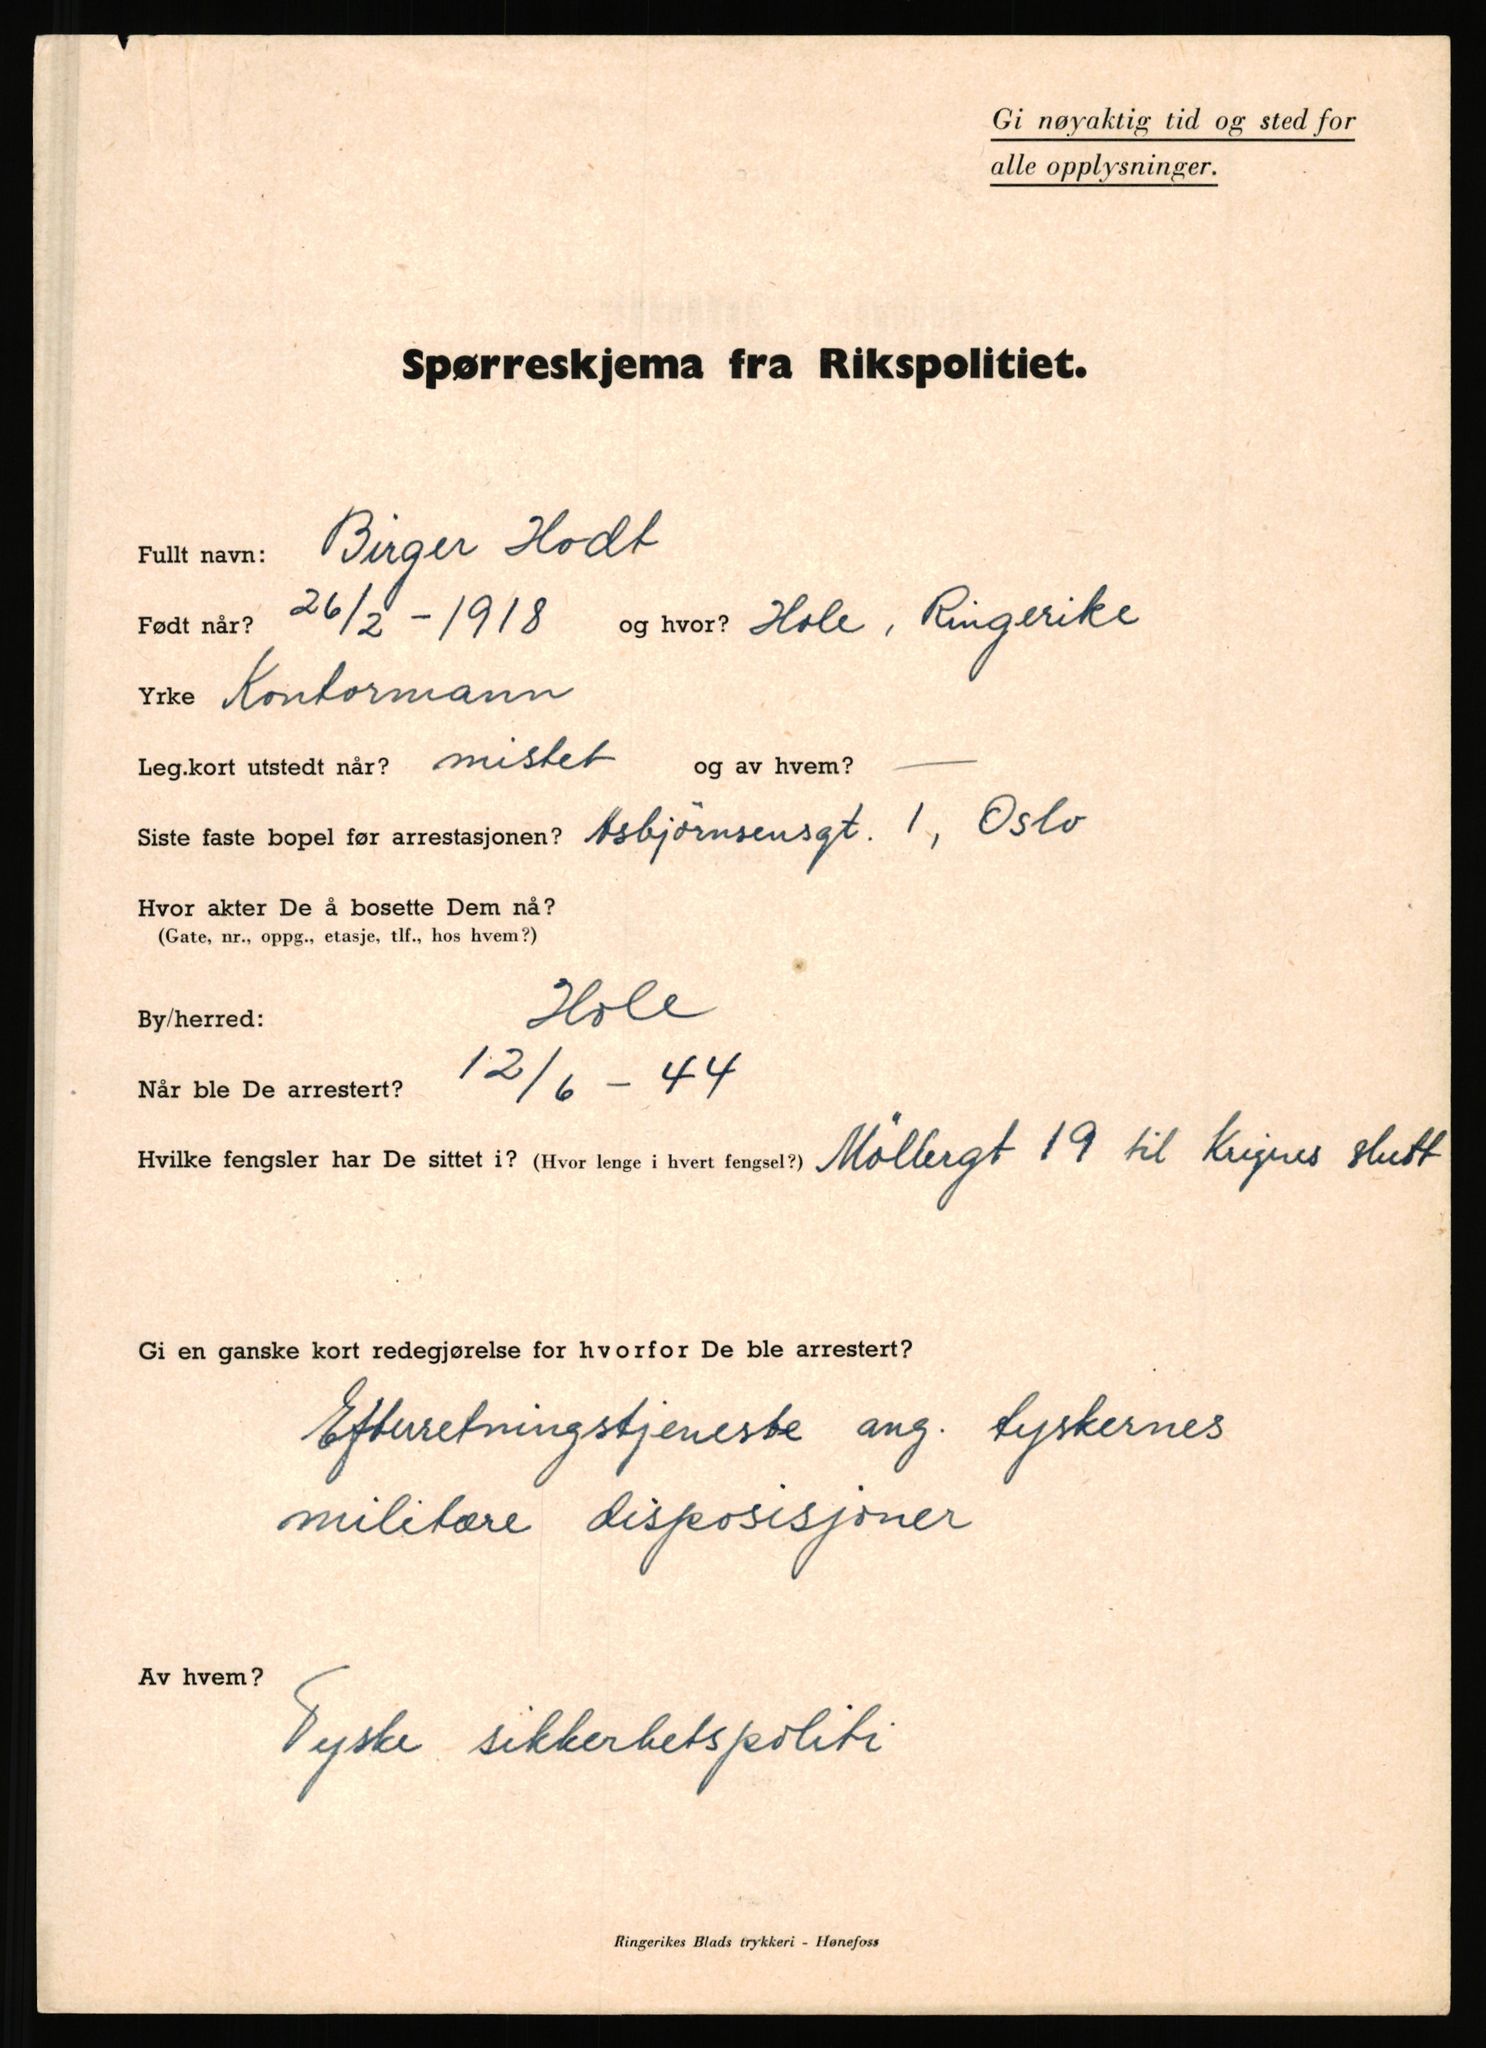 Gi nøyaktig tid og sted for
alle opplysninger.
Spørreskjema fra Rikspolitiet.
Fullt navn: Birger Hodt
Født når? 26/2 - 1918 og hvor? Hole, Ringerike
Yrke Kontormann
Leg.kort utstedt når? mistet og av hvem? —
Siste faste bopel før arrestasjonen? Asbjörnsensgt. 1, Oslo
Hvor akter De å bosette Dem nå?
(Gate, nr., oppg., etasje, tlf., hos hvem?)
By/herred: Hole
Når ble De arrestert? 12/6 - 44
Hvilke fengsler har De sittet i? (Hvor lenge i hvert fengsel?) Möllergt 19 til Krignes slutt
Gi en ganske kort redegjørelse for hvorfor De ble arrestert?
Efterretningstjeneste ang. tyskernes
militære disposisjoner
Av hvem?
Tyske sikkerhetspoliti
Ringerikes Blads trykkeri - Hønefoss